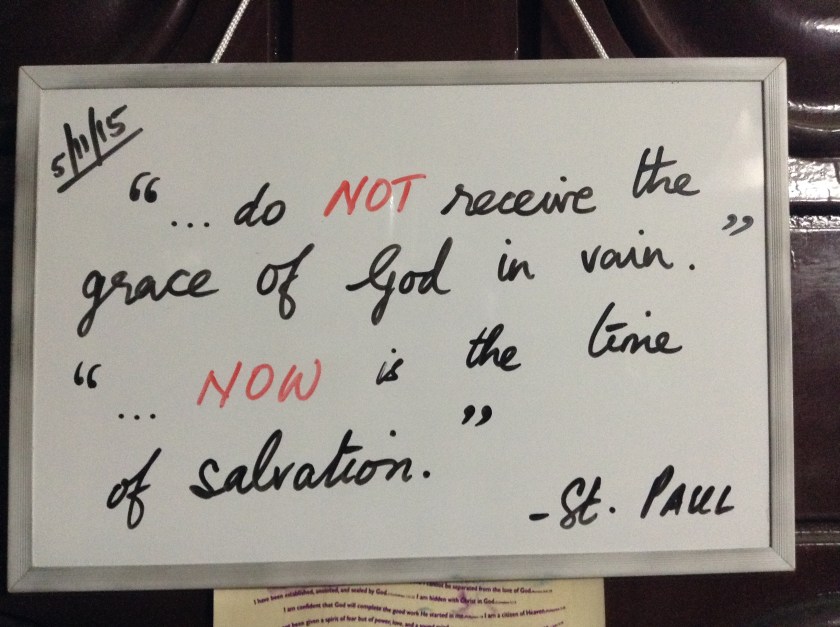 5/11/15
“... do NOT receive the
grace of God in vain.”
“... NOW is the time
of salvation.”
- St. PAUL
I have been established, anointed, and sealed by God I am hidden with Christ in God
I am confident that God will complete the good work He started in me I am a citizen of Heaven
been given a spirit of fear but of power, love, and a sound mind